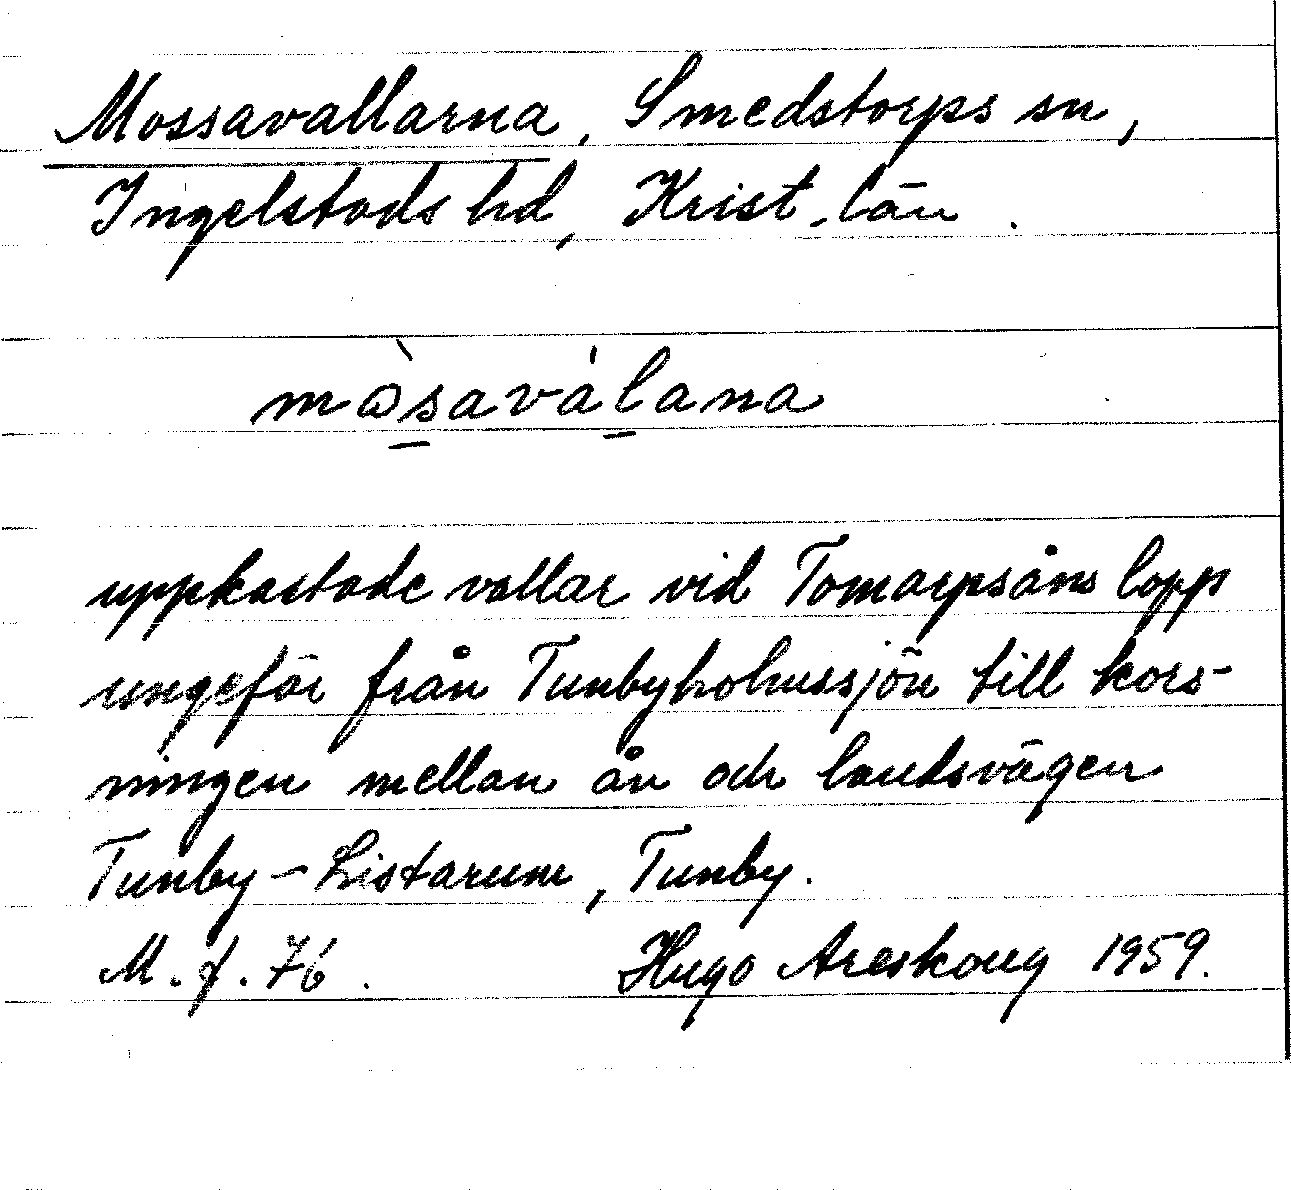 Mossavallarna, Smedstorps sn,
Ingelstads hd, Krist. län.
mò̱savá̱lana
uppkastade vallar vid Tomarpsåns lopp
ungefär från Tunbyholmssjön till kors-
ningen mellan ån och landsvägen
Tunby - Listarum, Tunby.
M. f. 76.
Hugo Areskoug 1959.